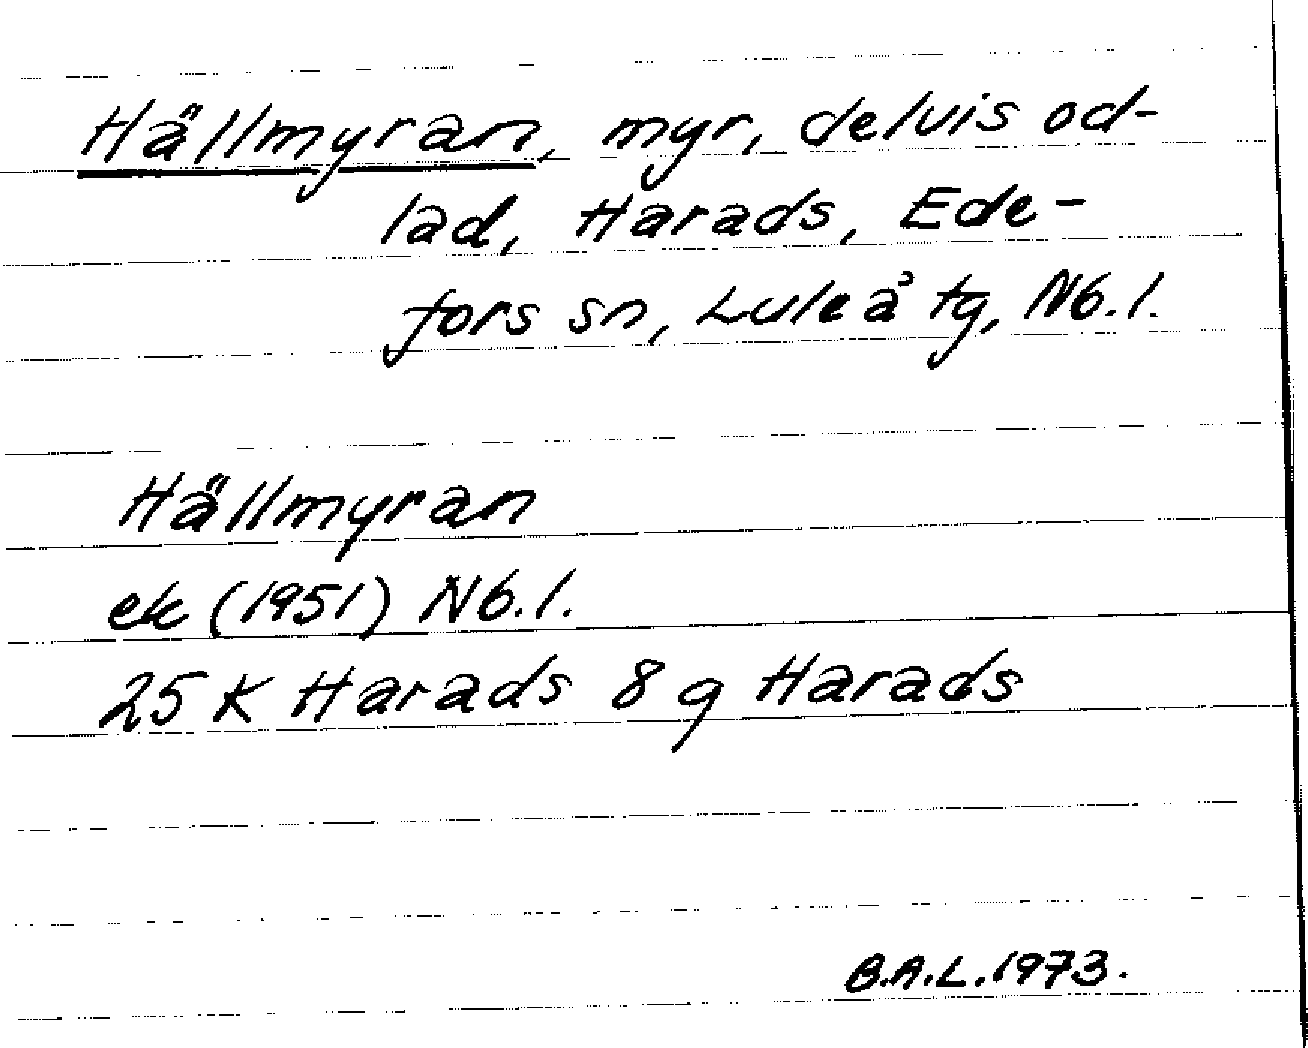 Hällmyran, myr, delvis od-
lad, Harads, Ede-
fors sn, Luleå tg, Nb.l.
Hällmyran
ek (1951) Nb.l.
25 K Harads 8 g Harads
B.A.L. 1973.